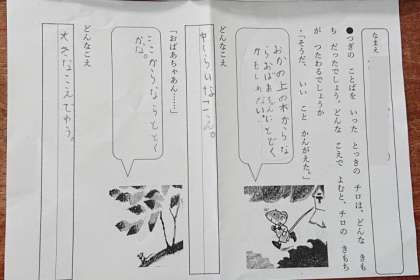 なまえ
●つぎの ことばを いった ときの チロは、どんな きも
ち だったでしょう。どんな こえで よむと、チロの きもち
が つたわるでしょうか
・「そうだ、いい こと かんがえた。」
おかの上の木からな
らおばあちゃんにとどく
かもしれない。
どんなこえ
「おばあちゃあん……」
ここからならとどく
かな。
どんなこえ
大きなこえでやろう。